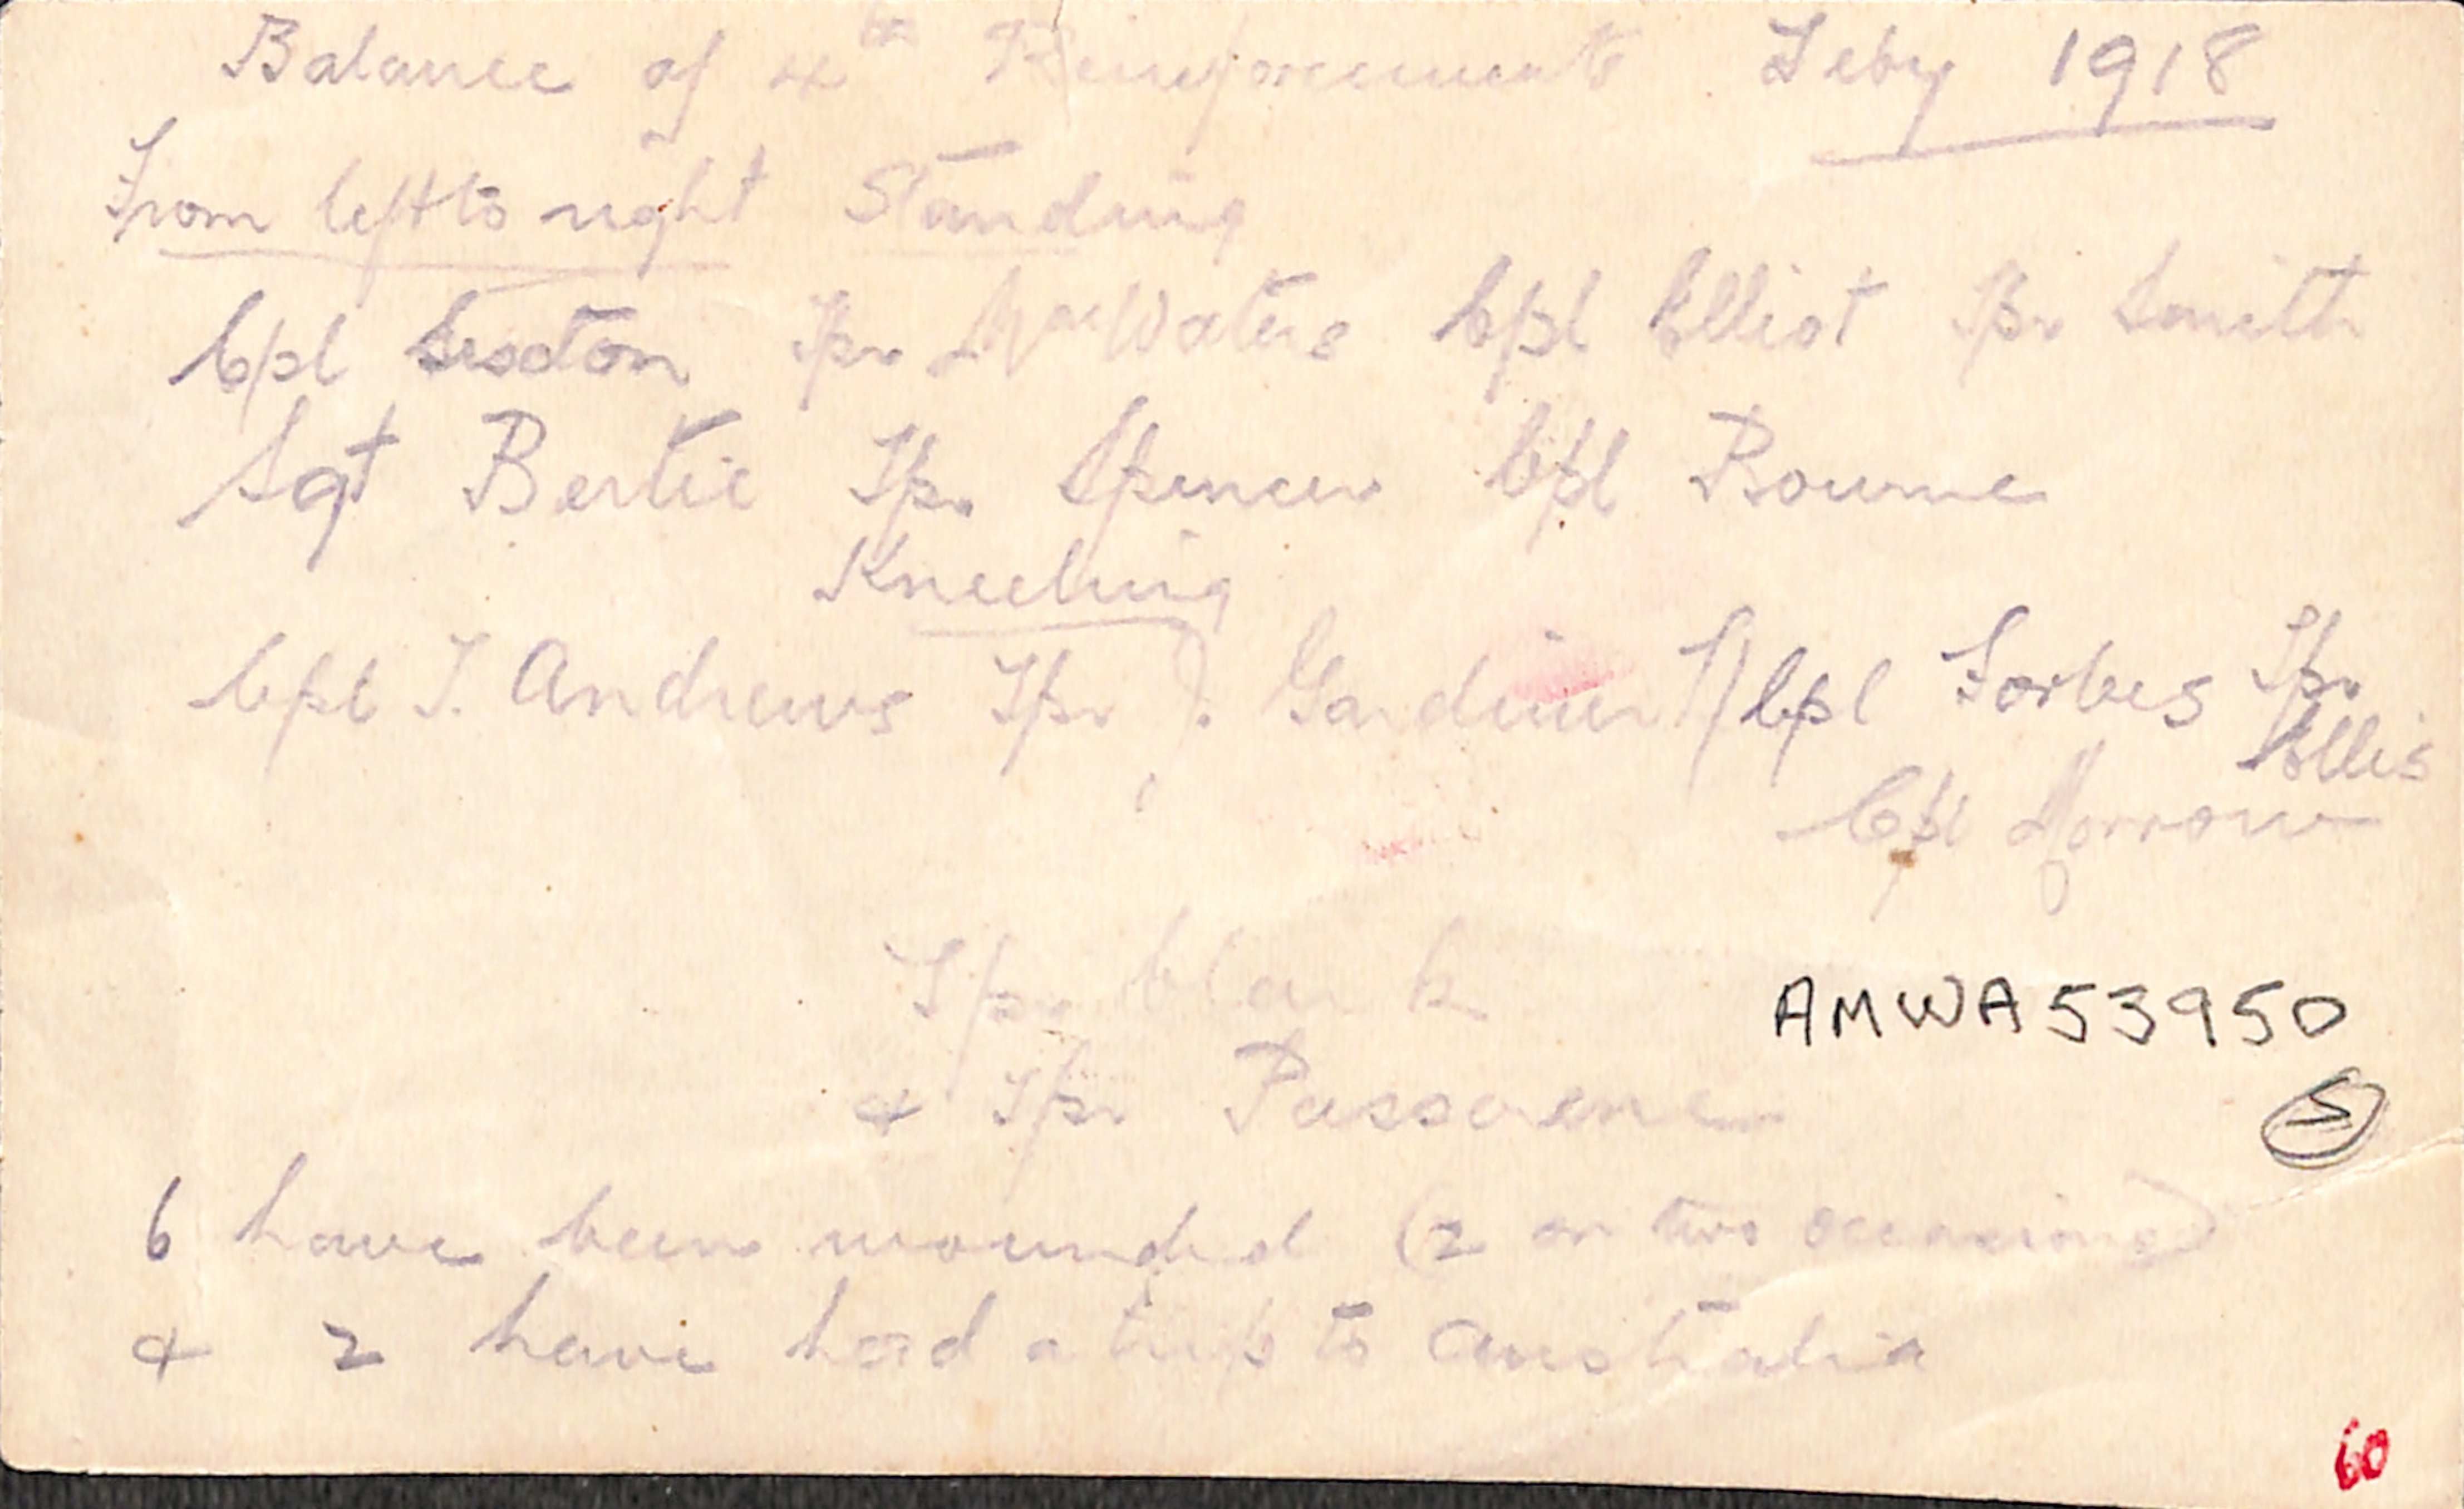 Balance of Reinforcements Feby 1918
From left to right Standing
Cpl Sexton Tpr MacWaters Cpl Elliot Tpr Smith
Sgt Bertie Tpr Spencer Cpl Bourne
Kneeling
Cpl T. Andrews Tpr J. Gardiner T/Cpl Forbes Tpr
Ellis
Cpl Morrow
Tpr Clark
AMWA53950
& Tpr
5
6 have been wounded (2 on two occasions)
& 2 have had a trip to Australia
60